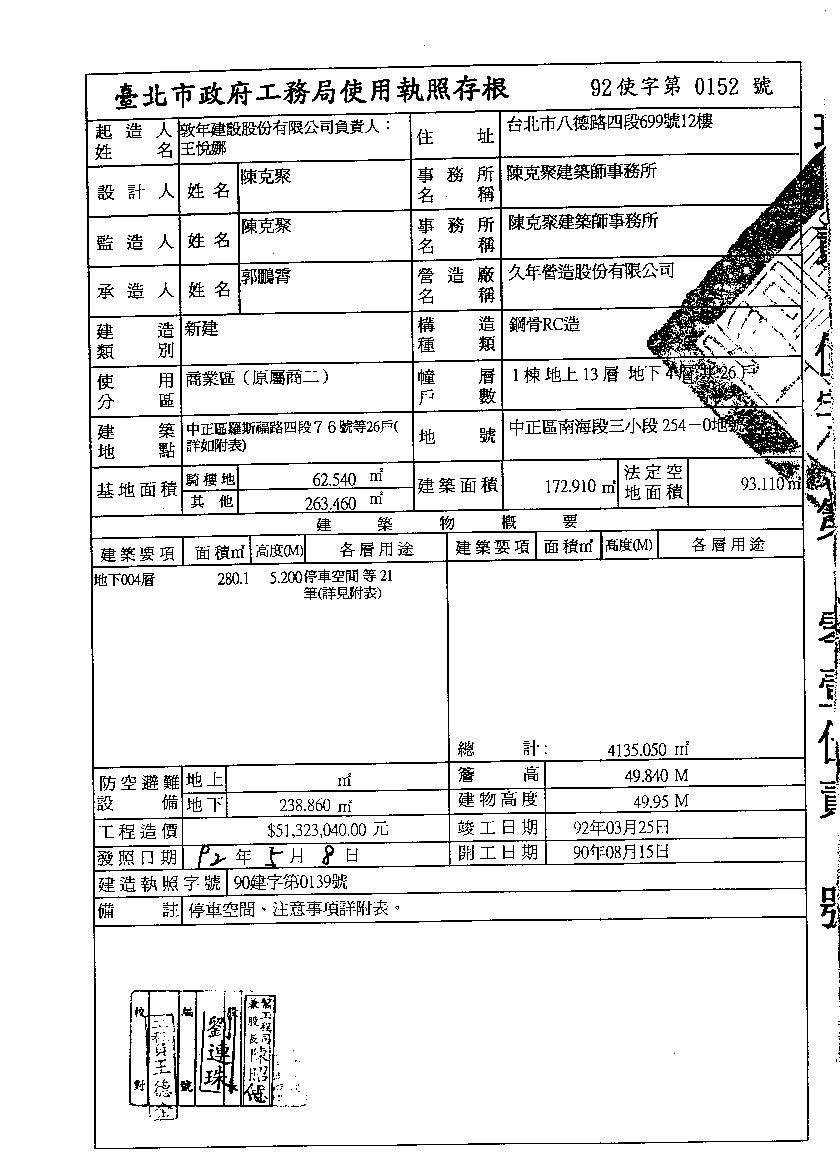 臺北市政府工務局使用執照存根 92使字第 0152 號
起造人姓名 敦年建設股份有限公司負責人：王悅娜 住址 台北市八德路四段699號12樓
設計人 姓名 陳克聚 事務所名稱 陳克聚建築師事務所
監造人 姓名 陳克聚 事務所名稱 陳克聚建築師事務所
承造人 姓名 郭鵬霄 營造廠名稱 久年營造股份有限公司
建造類別 新建 構造種類 鋼骨RC造
使用分區 商業區（原屬商二） 幢層戶數 1棟 地上13層 地下4層 共26戶
建築地點 中正區羅斯福路四段７６號等26戶(詳如附表) 地號 中正區南海段三小段 254－0地號
基地面積 騎樓地 62.540 ㎡ 建築面積 172.910 ㎡ 法定空地面積 93.110 ㎡
其他 263.460 ㎡
建築物概要
建築要項 面積㎡ 高度(M) 各層用途 建築要項 面積㎡ 高度(M) 各層用途
地下004層 280.1 5.200 停車空間 等 21
筆(詳見附表)
總計： 4135.050 ㎡
防空避難設備 地上 ㎡ 簷高 49.840 M
地下 238.860 ㎡ 建物高度 49.95 M
工程造價 $51,323,040.00 元 竣工日期 92年03月25日
發照日期 92 年 5 月 8 日 開工日期 90年08月15日
建造執照字號 90建字第0139號
備註 停車空間、注意事項詳附表。
校對
股長
劉連珠